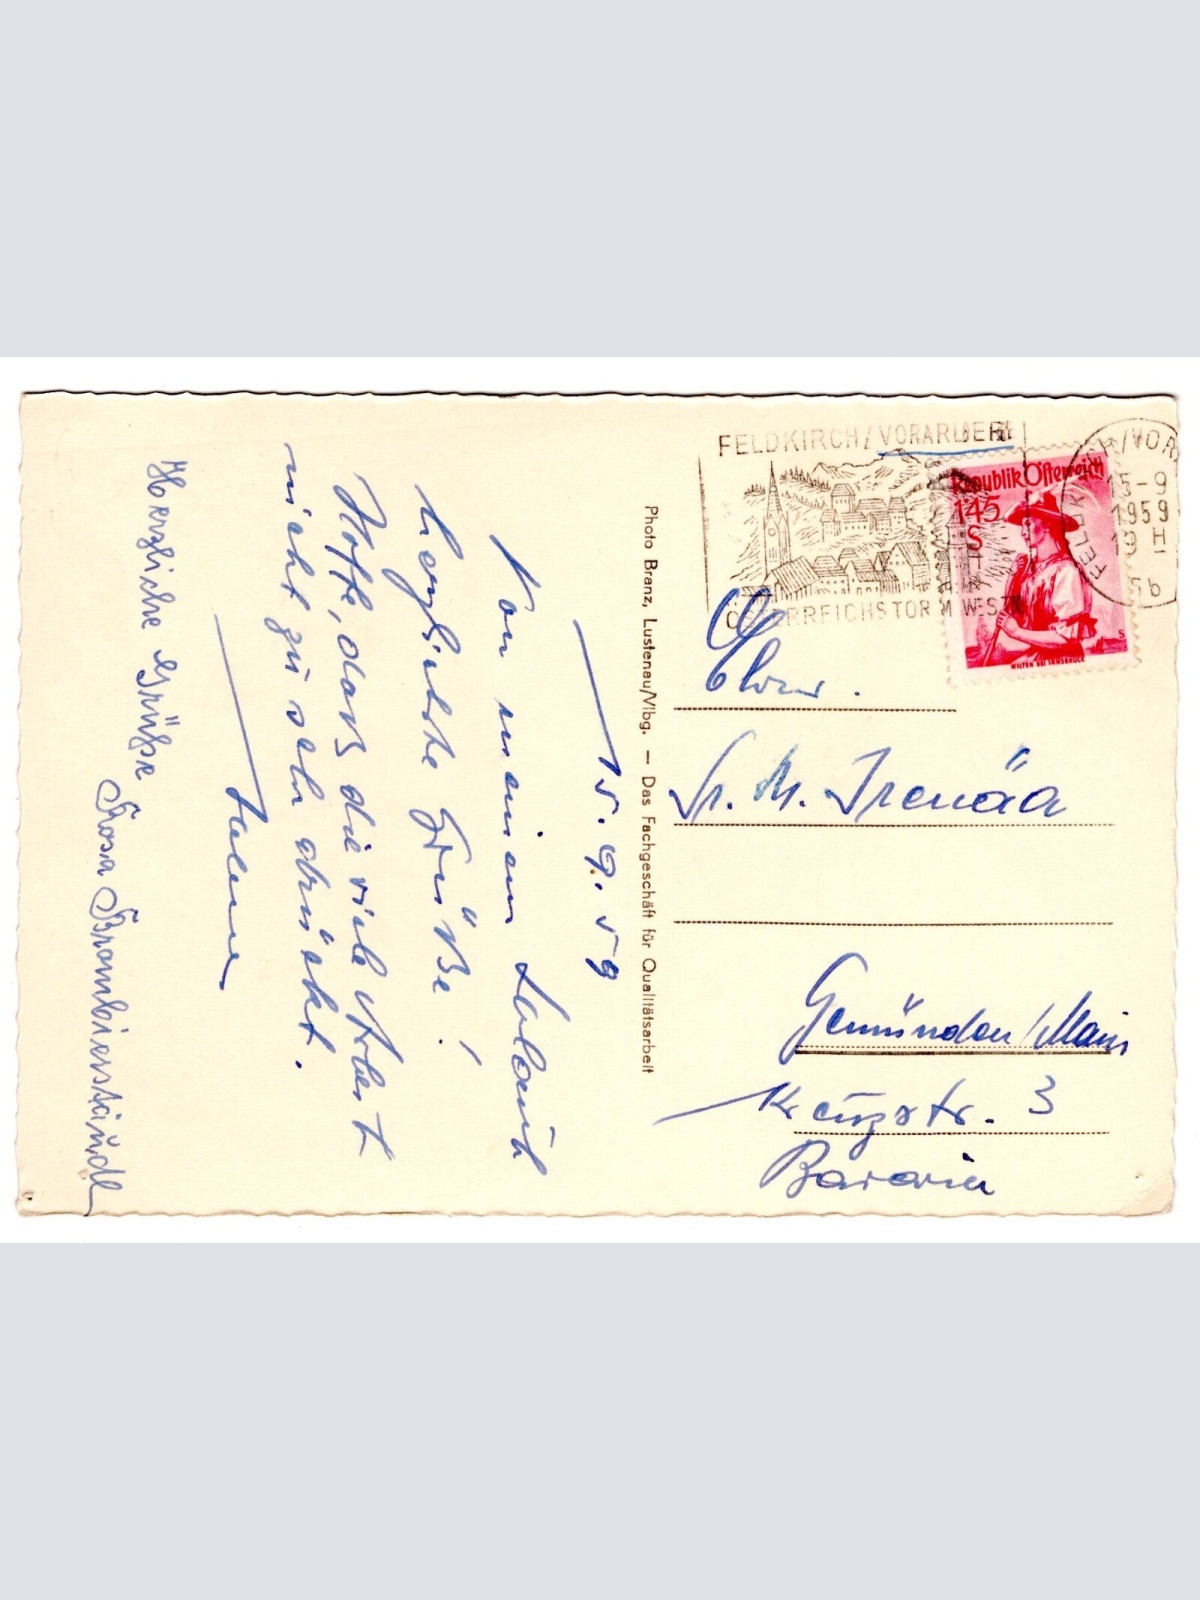 15.9.59
Von meinem Urlaub
herzliche Grüße!
Hoffe, daß die viele Arbeit
nicht zu sehr drückt.
Herzliche Grüße
Rosa Brombierstäudl
Photo Branz, Lustenau/Vlbg. — Das Fachgeschäft für Qualitätsarbeit
FELDKIRCH/VORARLBERG
ÖSTERREICHS TOR IM WESTEN
Republik Österreich
145
S
WILTEN BEI INNSBRUCK
15-9
1959
19 H
5b
Ehrw.
Sr. M. Irenäa
Gemünden/Main
Kreuzstr. 3
Bavaria